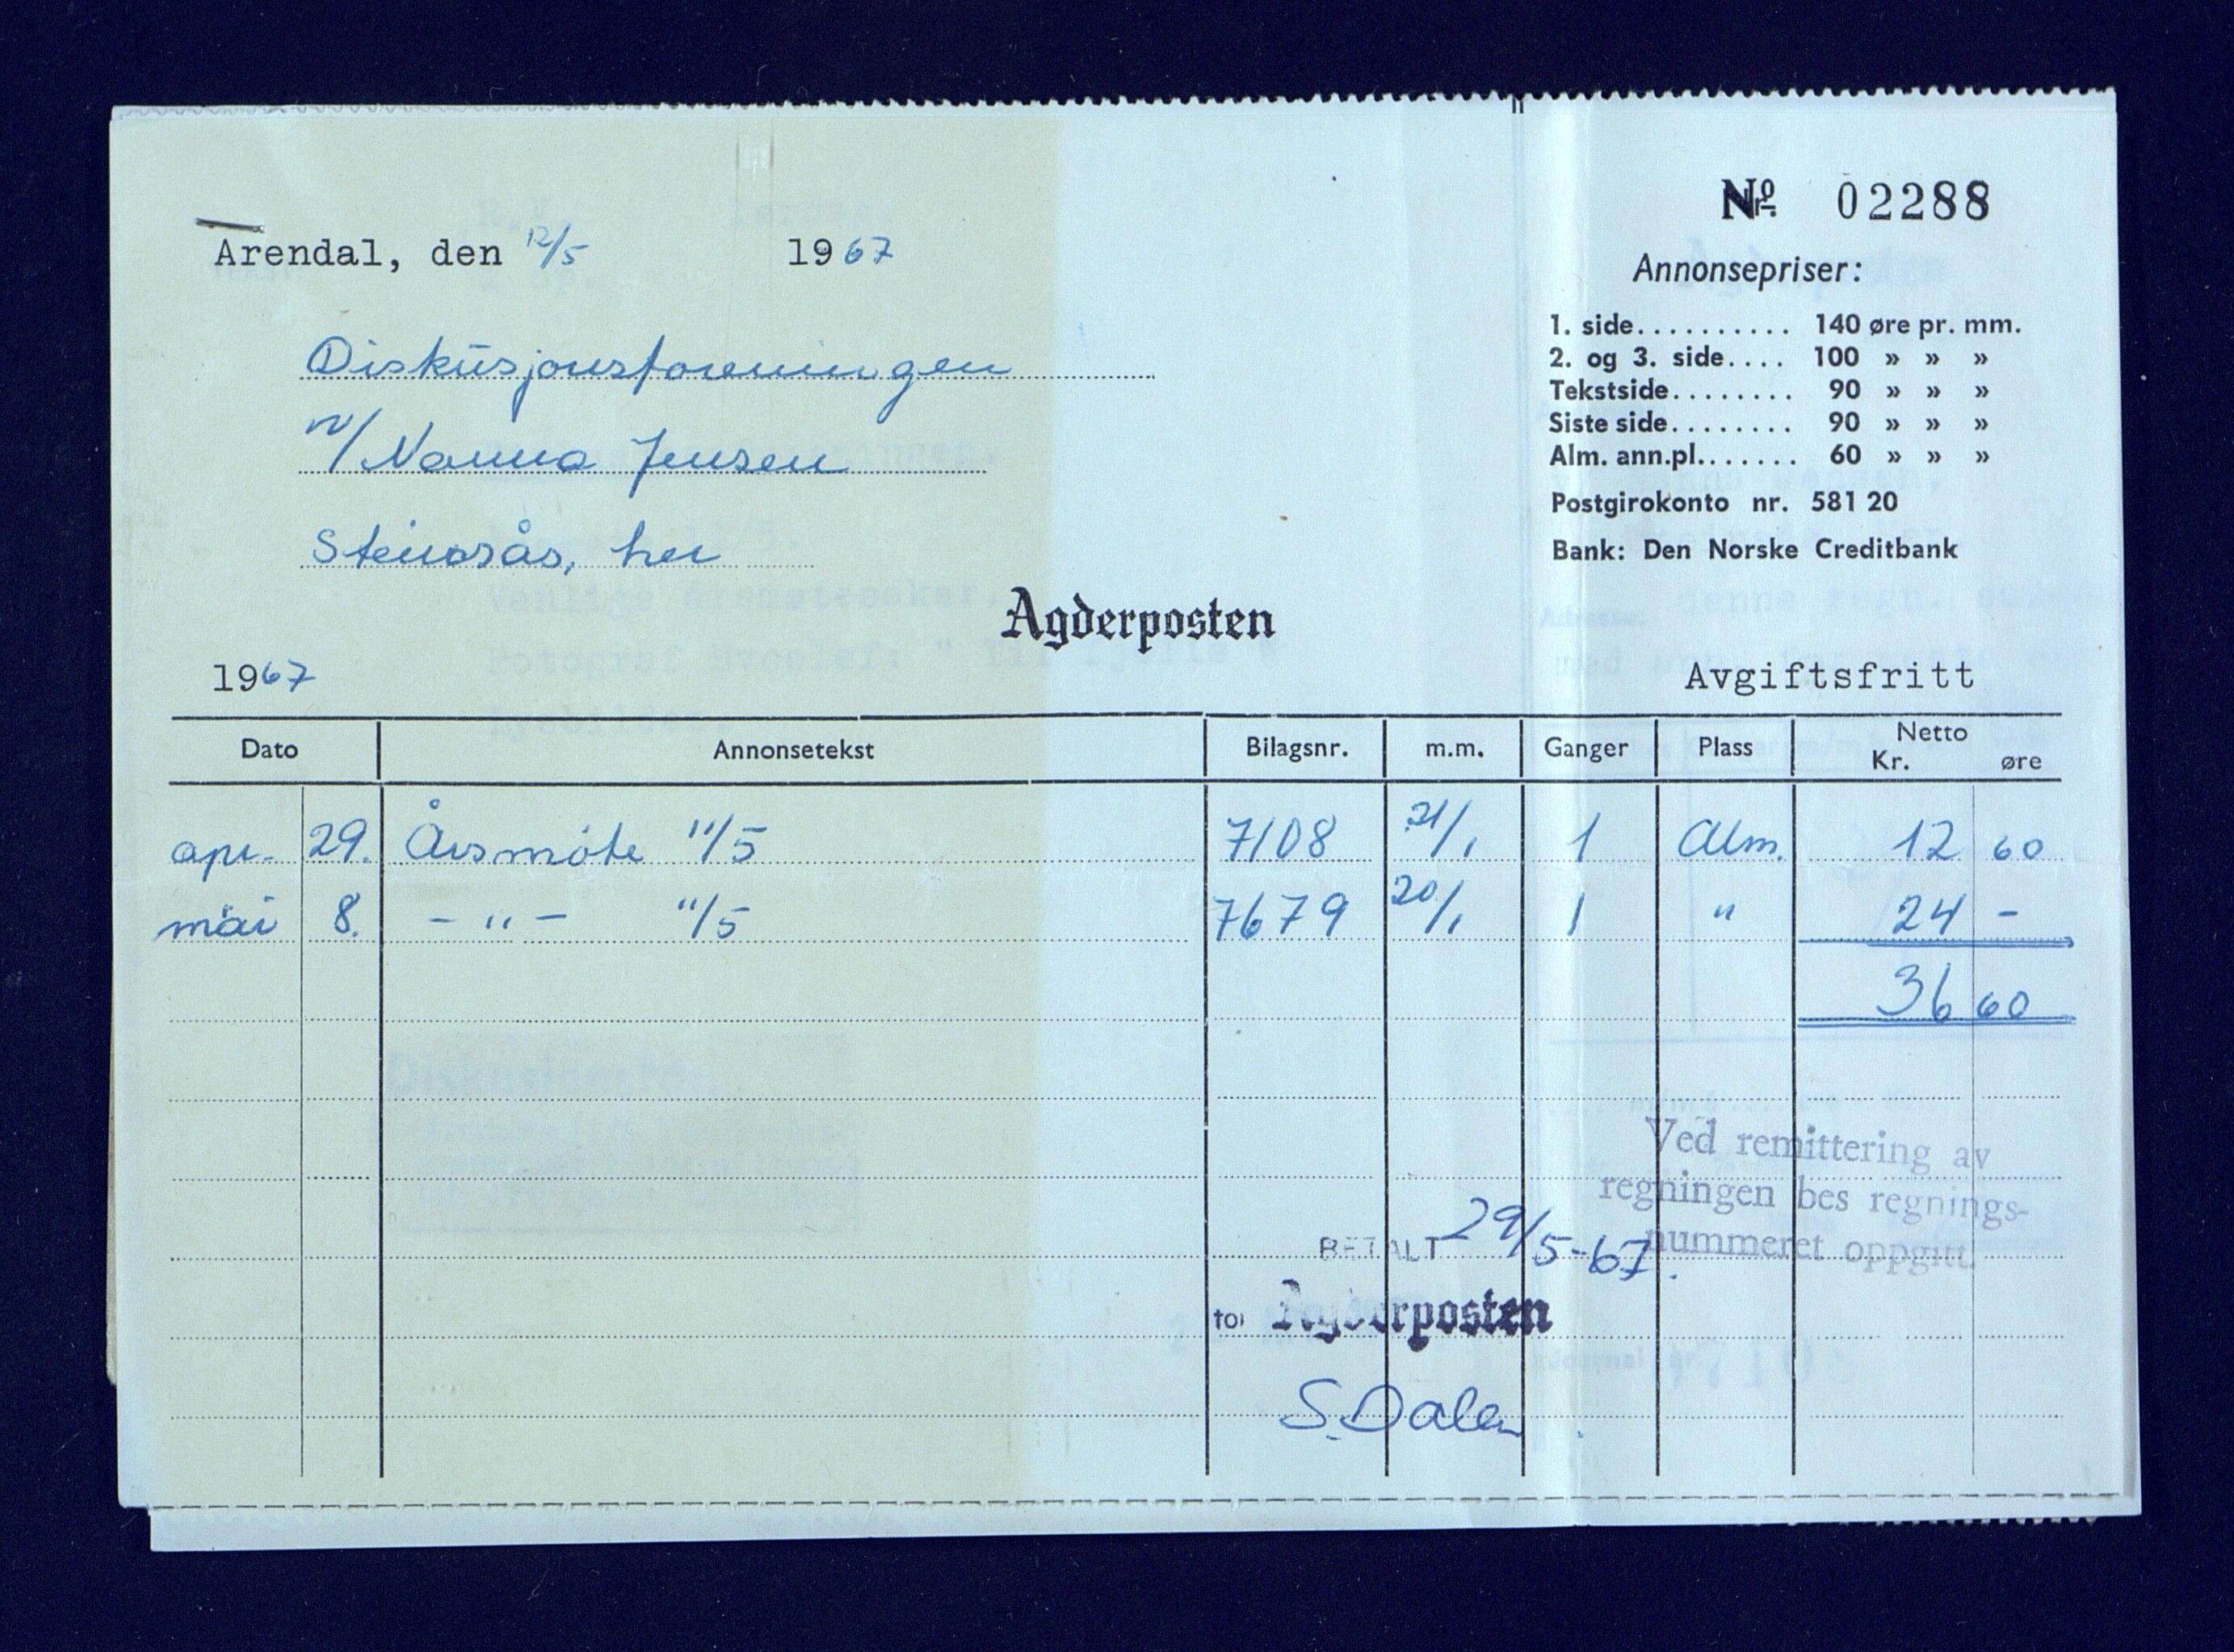 Nº 02288
Arendal, den 12/5 1967
Annonsepriser:
1. side.......... 140 øre pr. mm.
2. og 3. side.... 100 » » »
Tekstside........ 90 » » »
Siste side........ 90 » » »
Alm. ann.pl....... 60 » » »
Postgirokonto nr. 581 20
Bank: Den Norske Creditbank
Diskusjonsforeningen
v/ Nanna Jensen
Steinsås, her
Agderposten
1967 Avgiftsfritt
Dato Annonsetekst Bilagsnr. m.m. Ganger Plass Netto
Kr. øre
apr. 29. Årsmöte 11/5 7108 21/1 1 Alm. 12 60
mai 8. - " - 11/5 7679 20/1 1 " 24 -
36 60
Ved remittering av
regningen bes regnings-
nummeret oppgitt.
BETALT 29/5-67.
for Agderposten
S. Dalen